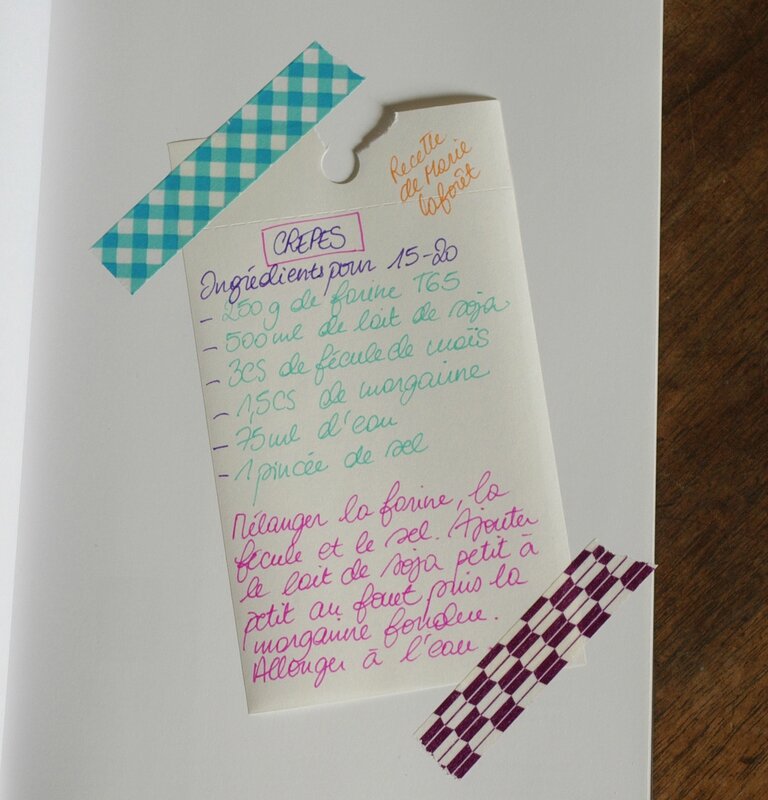 Recette
de Marie
Laforêt
CREPES
Ingrédients pour 15-20
- 250g de farine T65
- 500ml de lait de soja
- 3CS de fécule de maïs
- 1,5CS de margarine
- 75ml d'eau
- 1 pincée de sel
Mélanger la farine, la
fécule et le sel. Ajouter
le lait de soja petit à
petit au fouet puis la
margarine fondue.
Allonger à l'eau